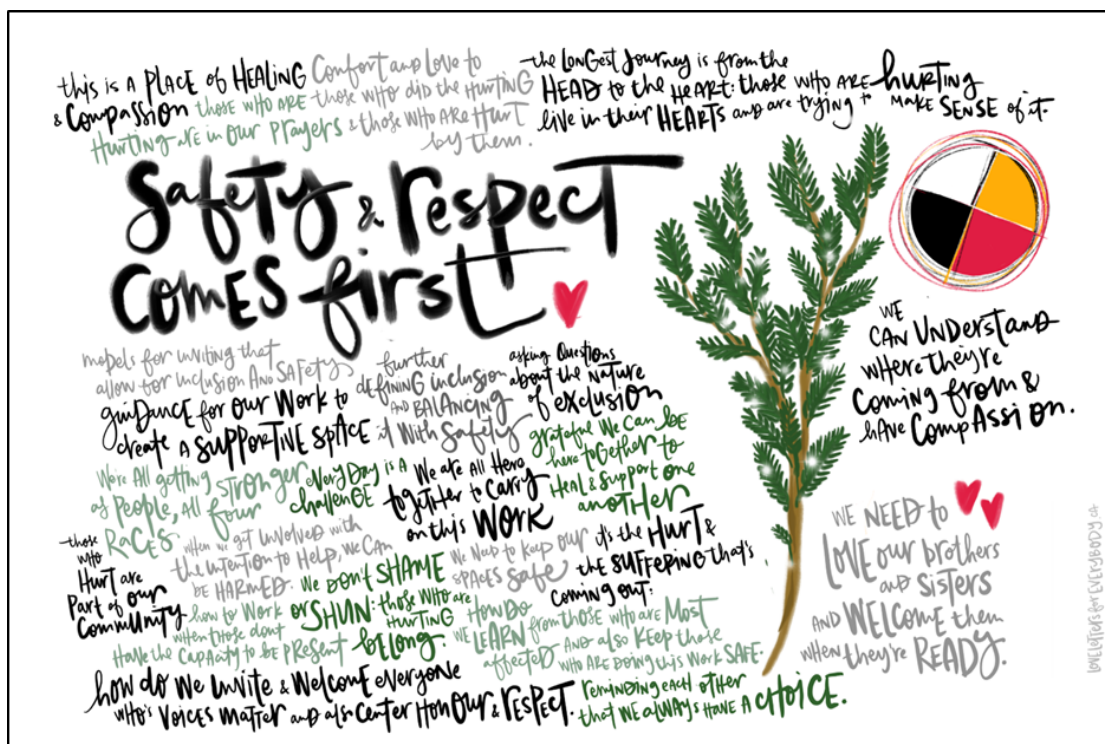 this is a PLACE of HEALING
& Compassion
those who are
Hurting are in our Prayers
Comfort and Love to
those who did the Hurting
& those who are Hurt
by them.
the LonGest Journey is from the
HEAD to the HEART: those who are hurting
live in their HEARTS and are trying to make SENSE of it.
Safety & respect
comes first
models for inviting that
allow for inclusion and SAFETY
guidance for our work to
create a SUPPORTIVE SPACE
further
DEFINING inclusion
AND BALANCING
it with safety
asking Questions
about the NATURE
of exclusion
We're All getting stronger
as People, All four
RACES
every Day is a
challenge
We are All Here
together to carry
on this WORK
grateful we can be
here together to
Heal & support one
another
those
who
Hurt are
Part of our
Community
when we get involved with
the intention to Help, we can
be HARMED.
We need to keep our
spaces safe
it's the HURT &
the SUFFERING that's
coming out.
how to work
when those dont
Have the capacity to be present
We Don't SHAME
or SHUN: those who are
HURTING
belong.
How DO
We LEARN from those who are Most
affected and also keep those
who are doing this work SAFE.
how do we invite & welcome everyone
who's voices matter and also center Honour & RESPECT.
reminding each other
that we always have a CHOICE.
We
can UNDerstand
where they're
coming from &
have CompAssion.
We NEED to
LOVE our brothers
and sisters
and WELcome them
when they're READY.
loveletersforeverybody.ca